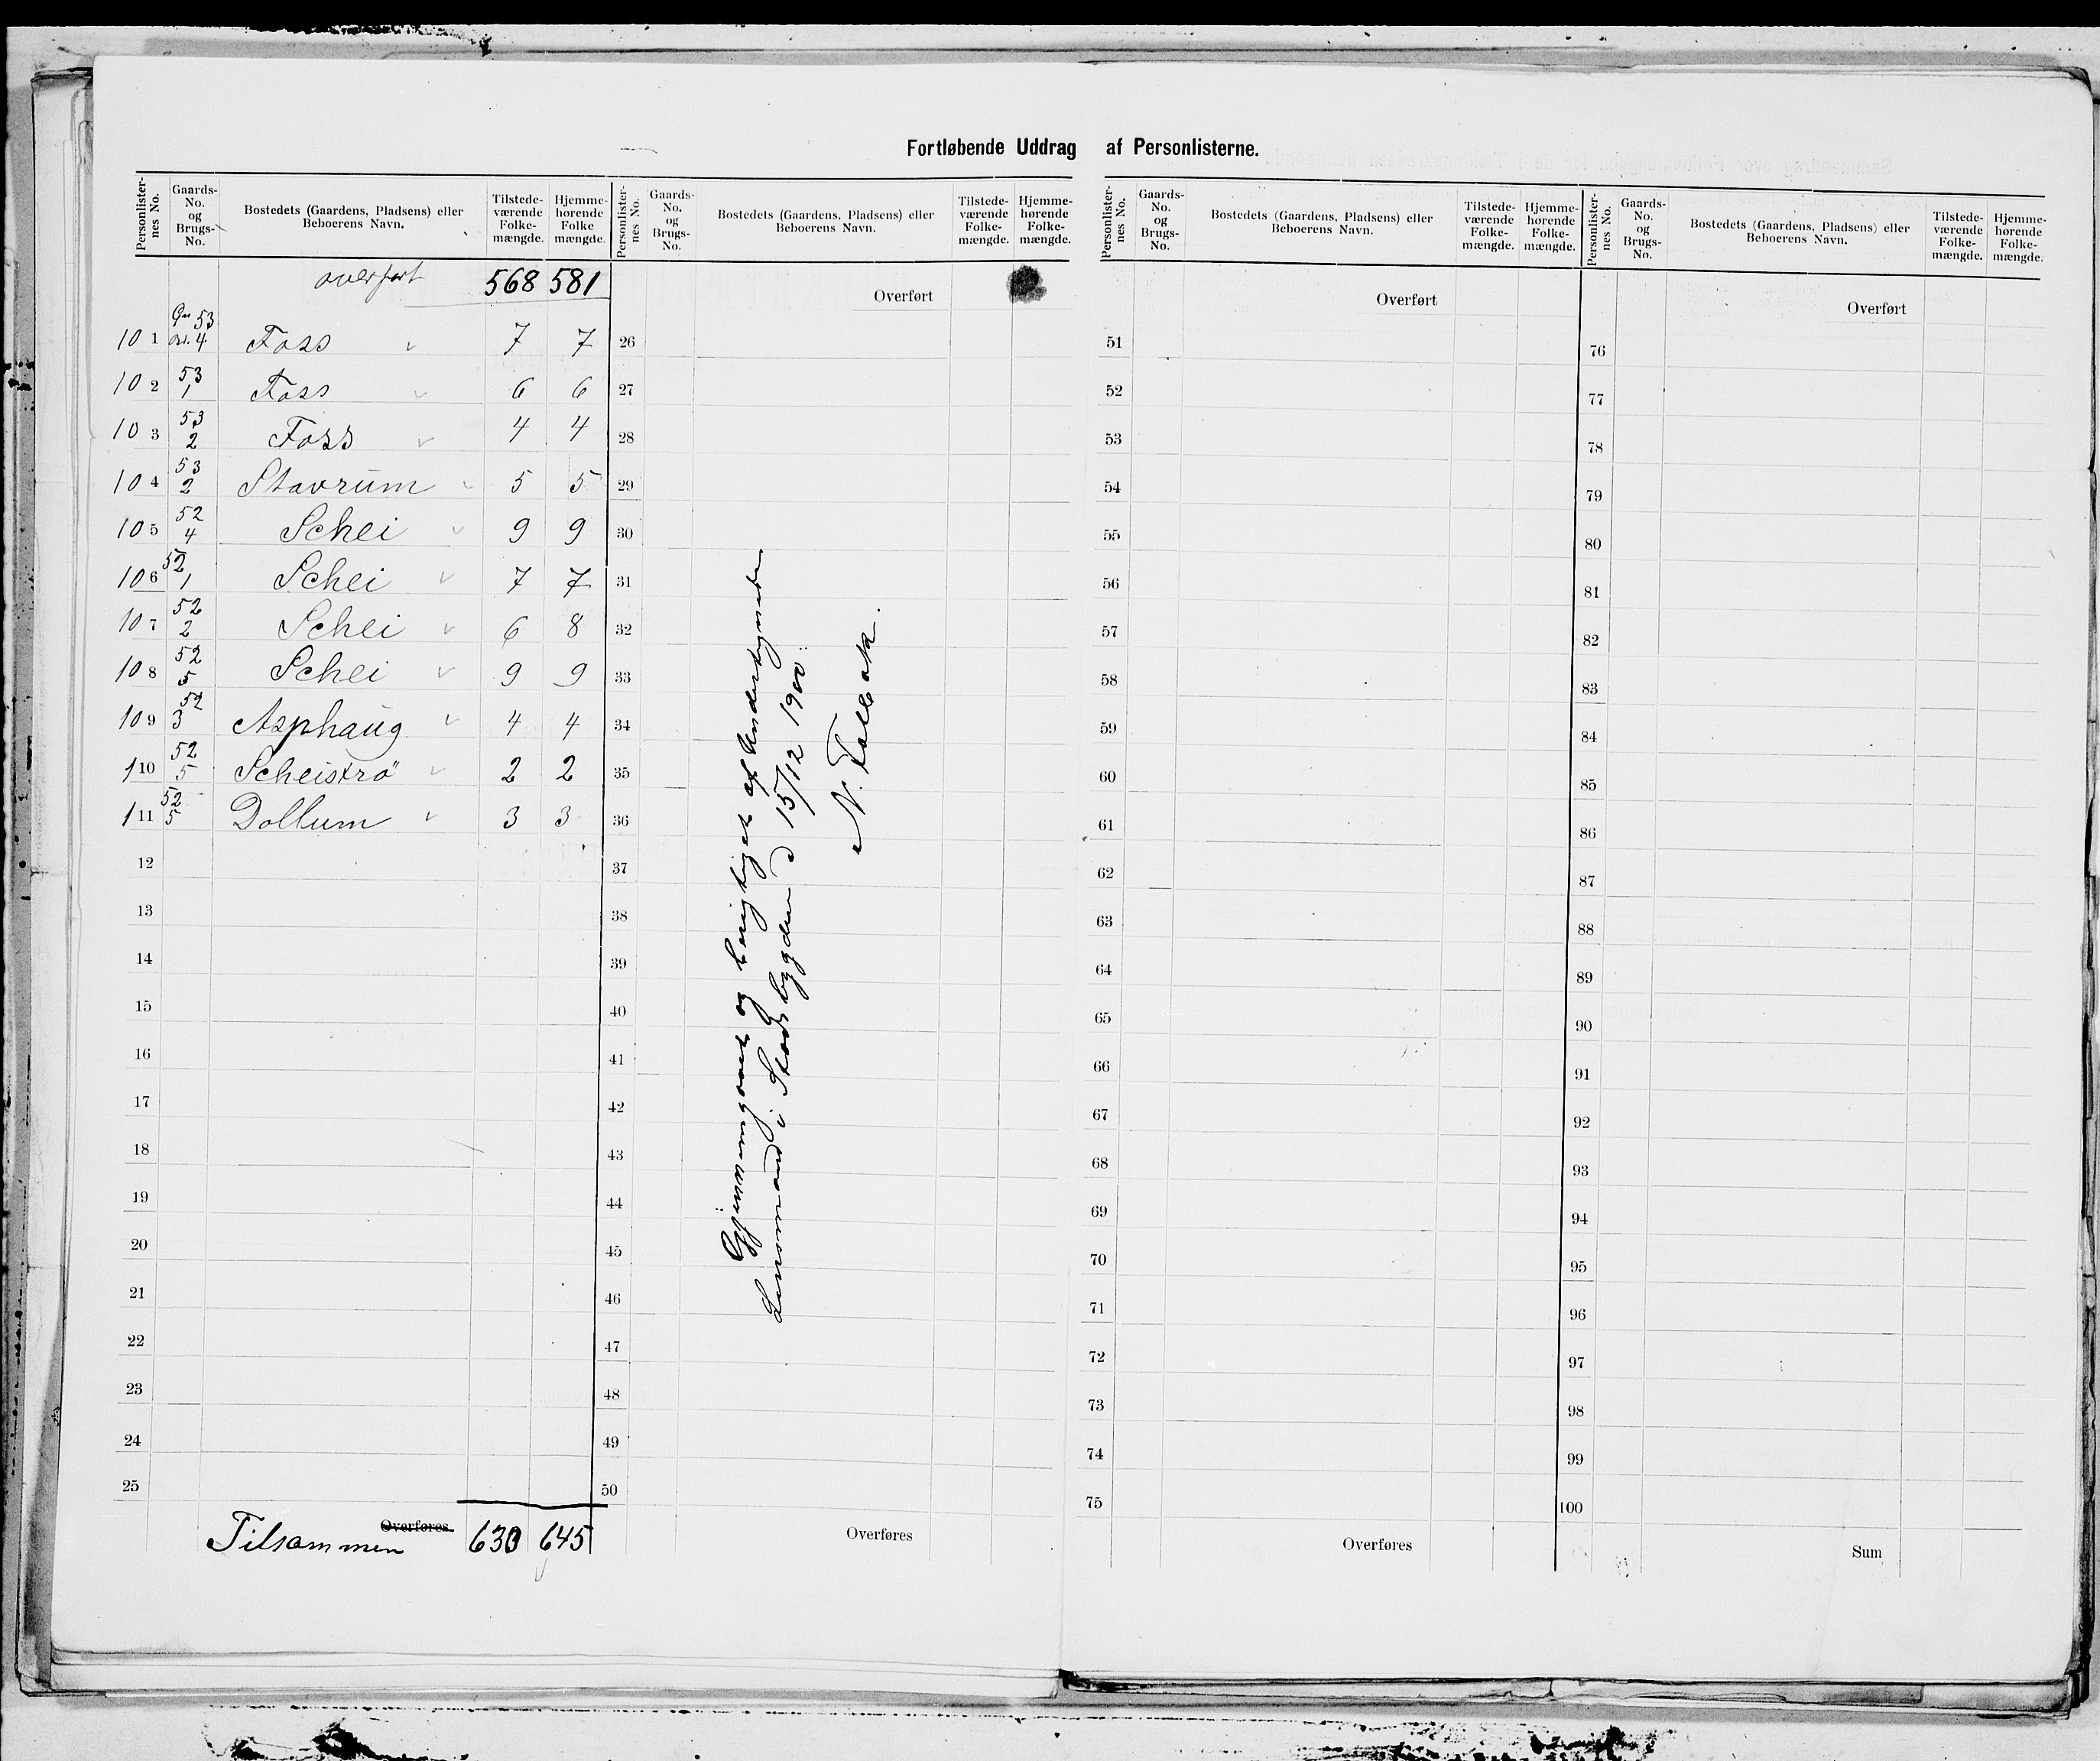 Fortløbende Uddrag af Personlisterne.
Personlister-nes No. | Gaards-No. og Brugs-No. | Bostedets (Gaardens, Pladsens) eller Beboerens Navn. | Tilstede-værende Folke-mængde. | Hjemme-hørende Folke mængde.
overført 568 581
101 Gn 53 4 Foss 7 7
102 53 1 Foss 6 6
103 53 2 Foss 4 4
104 53 2 Stavrum 5 5
105 52 4 Schei 9 9
106 52 1 Schei 7 7
107 52 2 Schei 6 8
108 52 5 Schei 9 9
109 52 3 Asphaug 4 4
110 52 5 Scheistrø 2 2
111 52 5 Dollum 3 3
12
13
14
15
16
17
18
19
20
21
22
23
24
25
Overføres
Tilsammen 630 645
Personlister-nes No. | Gaards-No. og Brugs-No. | Bostedets (Gaardens, Pladsens) eller Beboerens Navn. | Tilstede-værende Folke-mængde. | Hjemme-hørende Folke-mængde.
Overført
26
27
28
29
30
31
32
33
34
35
36
37
38
39
40
41
42
43
44
45
46
47
48
49
50
Overføres
Gjennemgaaet og berigtiget af Undertegnede
Lensmand i Stadsbygden d 15/12 1900
Personlister-nes No. | Gaards-No. og Brugs-No. | Bostedets (Gaardens, Pladsens) eller Beboerens Navn. | Tilstede-værende Folke-mængde. | Hjemme-hørende Folke-mængde.
Overført
51
52
53
54
55
56
57
58
59
60
61
62
63
64
65
66
67
68
69
70
71
72
73
74
75
Overføres
Personlister-nes No. | Gaards-No. og Brugs-No. | Bostedets (Gaardens, Pladsens) eller Beboerens Navn. | Tilstede-værende Folke-mængde. | Hjemme-hørende Folke-mængde.
Overført
76
77
78
79
80
81
82
83
84
85
86
87
88
89
90
91
92
93
94
95
96
97
98
99
100
Sum